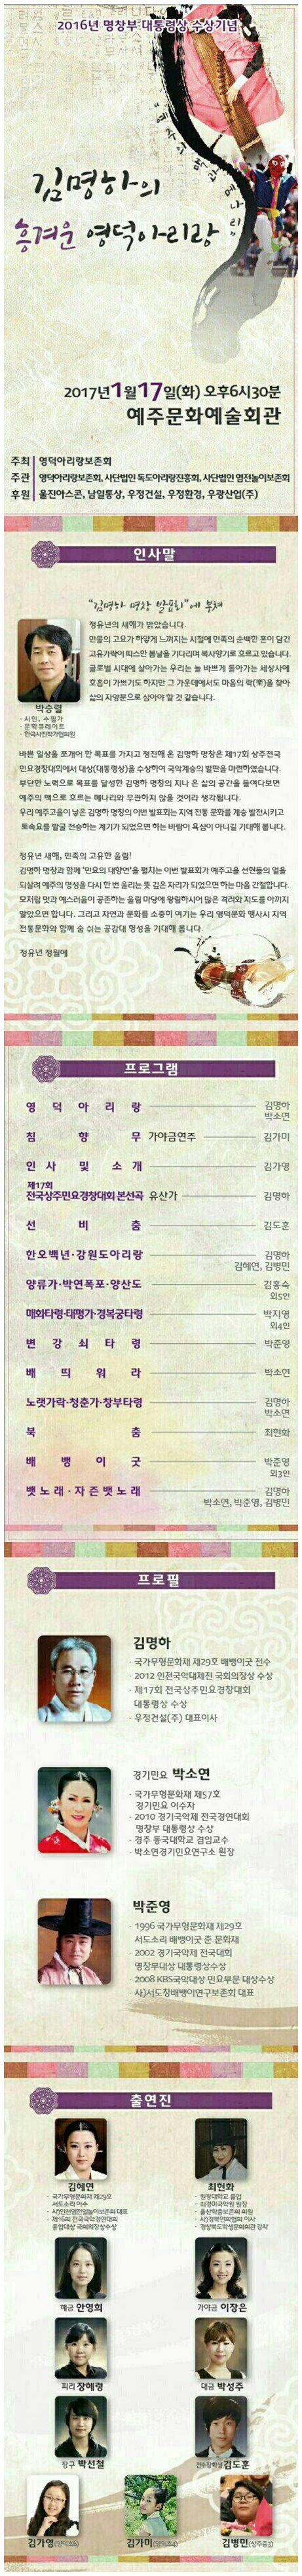 2016년 명창부 대통령상 수상기념
"예주의 맥관 메나리"
김명하의
흥겨운 영덕아리랑
2017년 1월 17일(화) 오후6시30분
예주문화예술회관
주최 영덕아리랑보존회
주관 영덕아리랑보존회, 사단법인 독도아리랑진흥회, 사단법인 염전놀이보존회
후원 울진아스콘, 남일통상, 우정건설, 우정환경, 우광산업(주)
인사말
"김명하 명창 발표회"에 부쳐
정유년의 새해가 밝았습니다.
만물의 고요가 하얗게 느껴지는 시절에 민족의 순백한 혼이 담긴
고유가락이 따스한 봄날을 기다리며 복사향기로 흐르고 있습니다.
글로벌 시대에 살아가는 우리는 늘 바쁘게 돌아가는 세상사에
호흡이 가쁘기도 하지만 그 가운데에서도 마음의 락(樂)을 찾아
삶의 자양분으로 삼아야 할 것 같습니다.
박승렬
- 시인, 수필가
- 문학큐레이트
- 한국사진작가협회원
바쁜 일상을 쪼개어 한 목표를 가지고 정진해 온 김명하 명창은 제17회 상주전국
민요경창대회에서 대상(대통령상)을 수상하여 국악계승의 발판을 마련하였습니다.
부단한 노력으로 목표를 달성한 김명하 명창의 지나 온 삶의 공간을 들여다보면
예주의 맥으로 흐르는 메나리와 무관하지 않을 것이라 생각됩니다.
우리 예주고을이 낳은 김명하 명창의 이번 발표회는 지역 전통 문화를 계승 발전시키고
토속요를 발굴 전승하는 계기가 되었으면 하는 바람이 욕심이 아니길 기대해 봅니다.
정유년 새해, 민족의 고유한 울림!
김명하 명창과 함께 '민요의 대향연'을 펼치는 이번 발표회가 예주고을 선현들의 얼을
되살려 예주의 명성을 다시 한 번 울리는 뜻 깊은 자리가 되었으면 하는 마음 간절합니다.
모처럼 멋과 예스러움이 공존하는 울림 마당에 왕림하시어 많은 격려와 지도를 아끼지
말았으면 합니다. 그리고 자연과 문화를 소중히 여기는 우리 영덕문화 행사시 지역
전통문화와 함께 숨 쉬는 공감대 형성을 기대해 봅니다.
정유년 정월에
프로그램
영덕아리랑 김명하
박소연
침향무 가야금연주 김가미
인사 및 소개 김가영
제17회
전국상주민요경창대회 본선곡 유산가 김명하
선비춤 김도훈
한오백년·강원도아리랑 김명하
김혜연, 김병민
양류가·박연폭포·양산도 김홍숙
외5인
매화타령·태평가·경복궁타령 박지영
외4인
변강쇠타령 박준영
배띄워라 박소연
노랫가락·청춘가·창부타령 김명하
박소연
북춤 최현화
배뱅이굿 박준영
외3인
뱃노래·자즌뱃노래 김명하
박소연, 박준영, 김병민
프로필
김명하
- 국가무형문화재 제29호 배뱅이굿 전수
- 2012 인천국악대제전 국회의장상 수상
- 제17회 전국상주민요경창대회
대통령상 수상
- 우정건설(주) 대표이사
경기민요 박소연
- 국가무형문화재 제57호
경기민요 이수자
- 2010 경기국악제 전국경연대회
명창부 대통령상 수상
- 경주 동국대학교 겸임교수
- 박소연경기민요연구소 원장
박준영
- 1996 국가무형문화재 제29호
서도소리 배뱅이굿 준.문화재
- 2002 경기국악제 전국대회
명창부대상 대통령상수상
- 2008 KBS국악대상 민요부문 대상수상
- 사)서도창배뱅이연구보존회 대표
출연진
김혜연
- 국가무형문화재 제29호
서도소리 이수
- 제16회 전국국악경연대회
종합대상 국회의장상수상
최현화
해금 안영희
가야금 이장은
피리 장혜령
대금 박성주
장구 박선철
전수장학생 김도훈
김가영(영덕초6)
김가미(영덕초4)
김병민(상주중3)